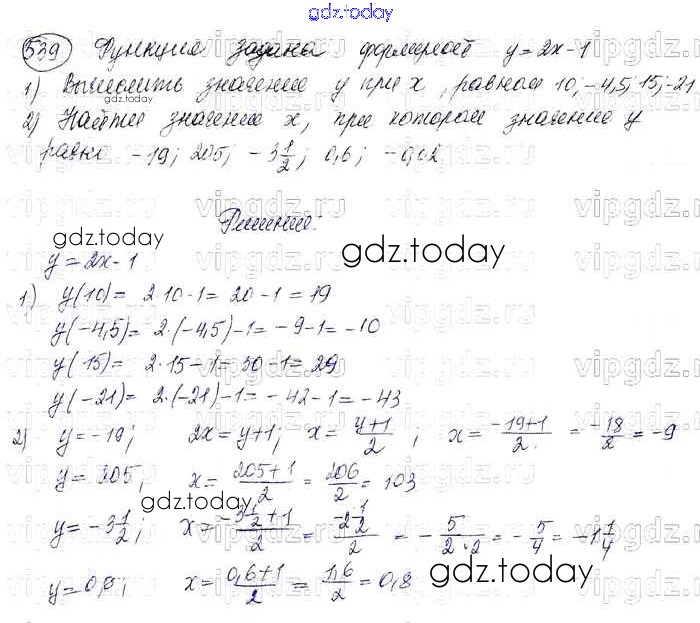 gdz.today
539 Функция задана формулой y=2x-1
1) Вычислить значение y при x, равном 10; -4,5; 15; -21
gdz.today
2) Найти значение x, при котором значение y
равно -19; 205; -3 1/2; 0,6; -0,02
Решение:
gdz.today
gdz.today
y=2x-1
1) y(10)= 2·10-1=20-1=19
y(-4,5)= 2·(-4,5)-1= -9-1= -10
y(15)= 2·15-1=30-1=29
y(-21)= 2·(-21)-1= -42-1= -43
2) y=-19; 2x=y+1; x= (y+1)/2; x= (-19+1)/2 = -18/2 = -9
y=205; x= (205+1)/2 = 206/2 = 103
gdz.today
y=-3 1/2; x= (-3 1/2+1)/2 = (-2 1/2)/2 = - 5/(2·2) = - 5/4 = -1 1/4
y=0,6; x= (0,6+1)/2 = 1,6/2 = 0,8
gdz.today